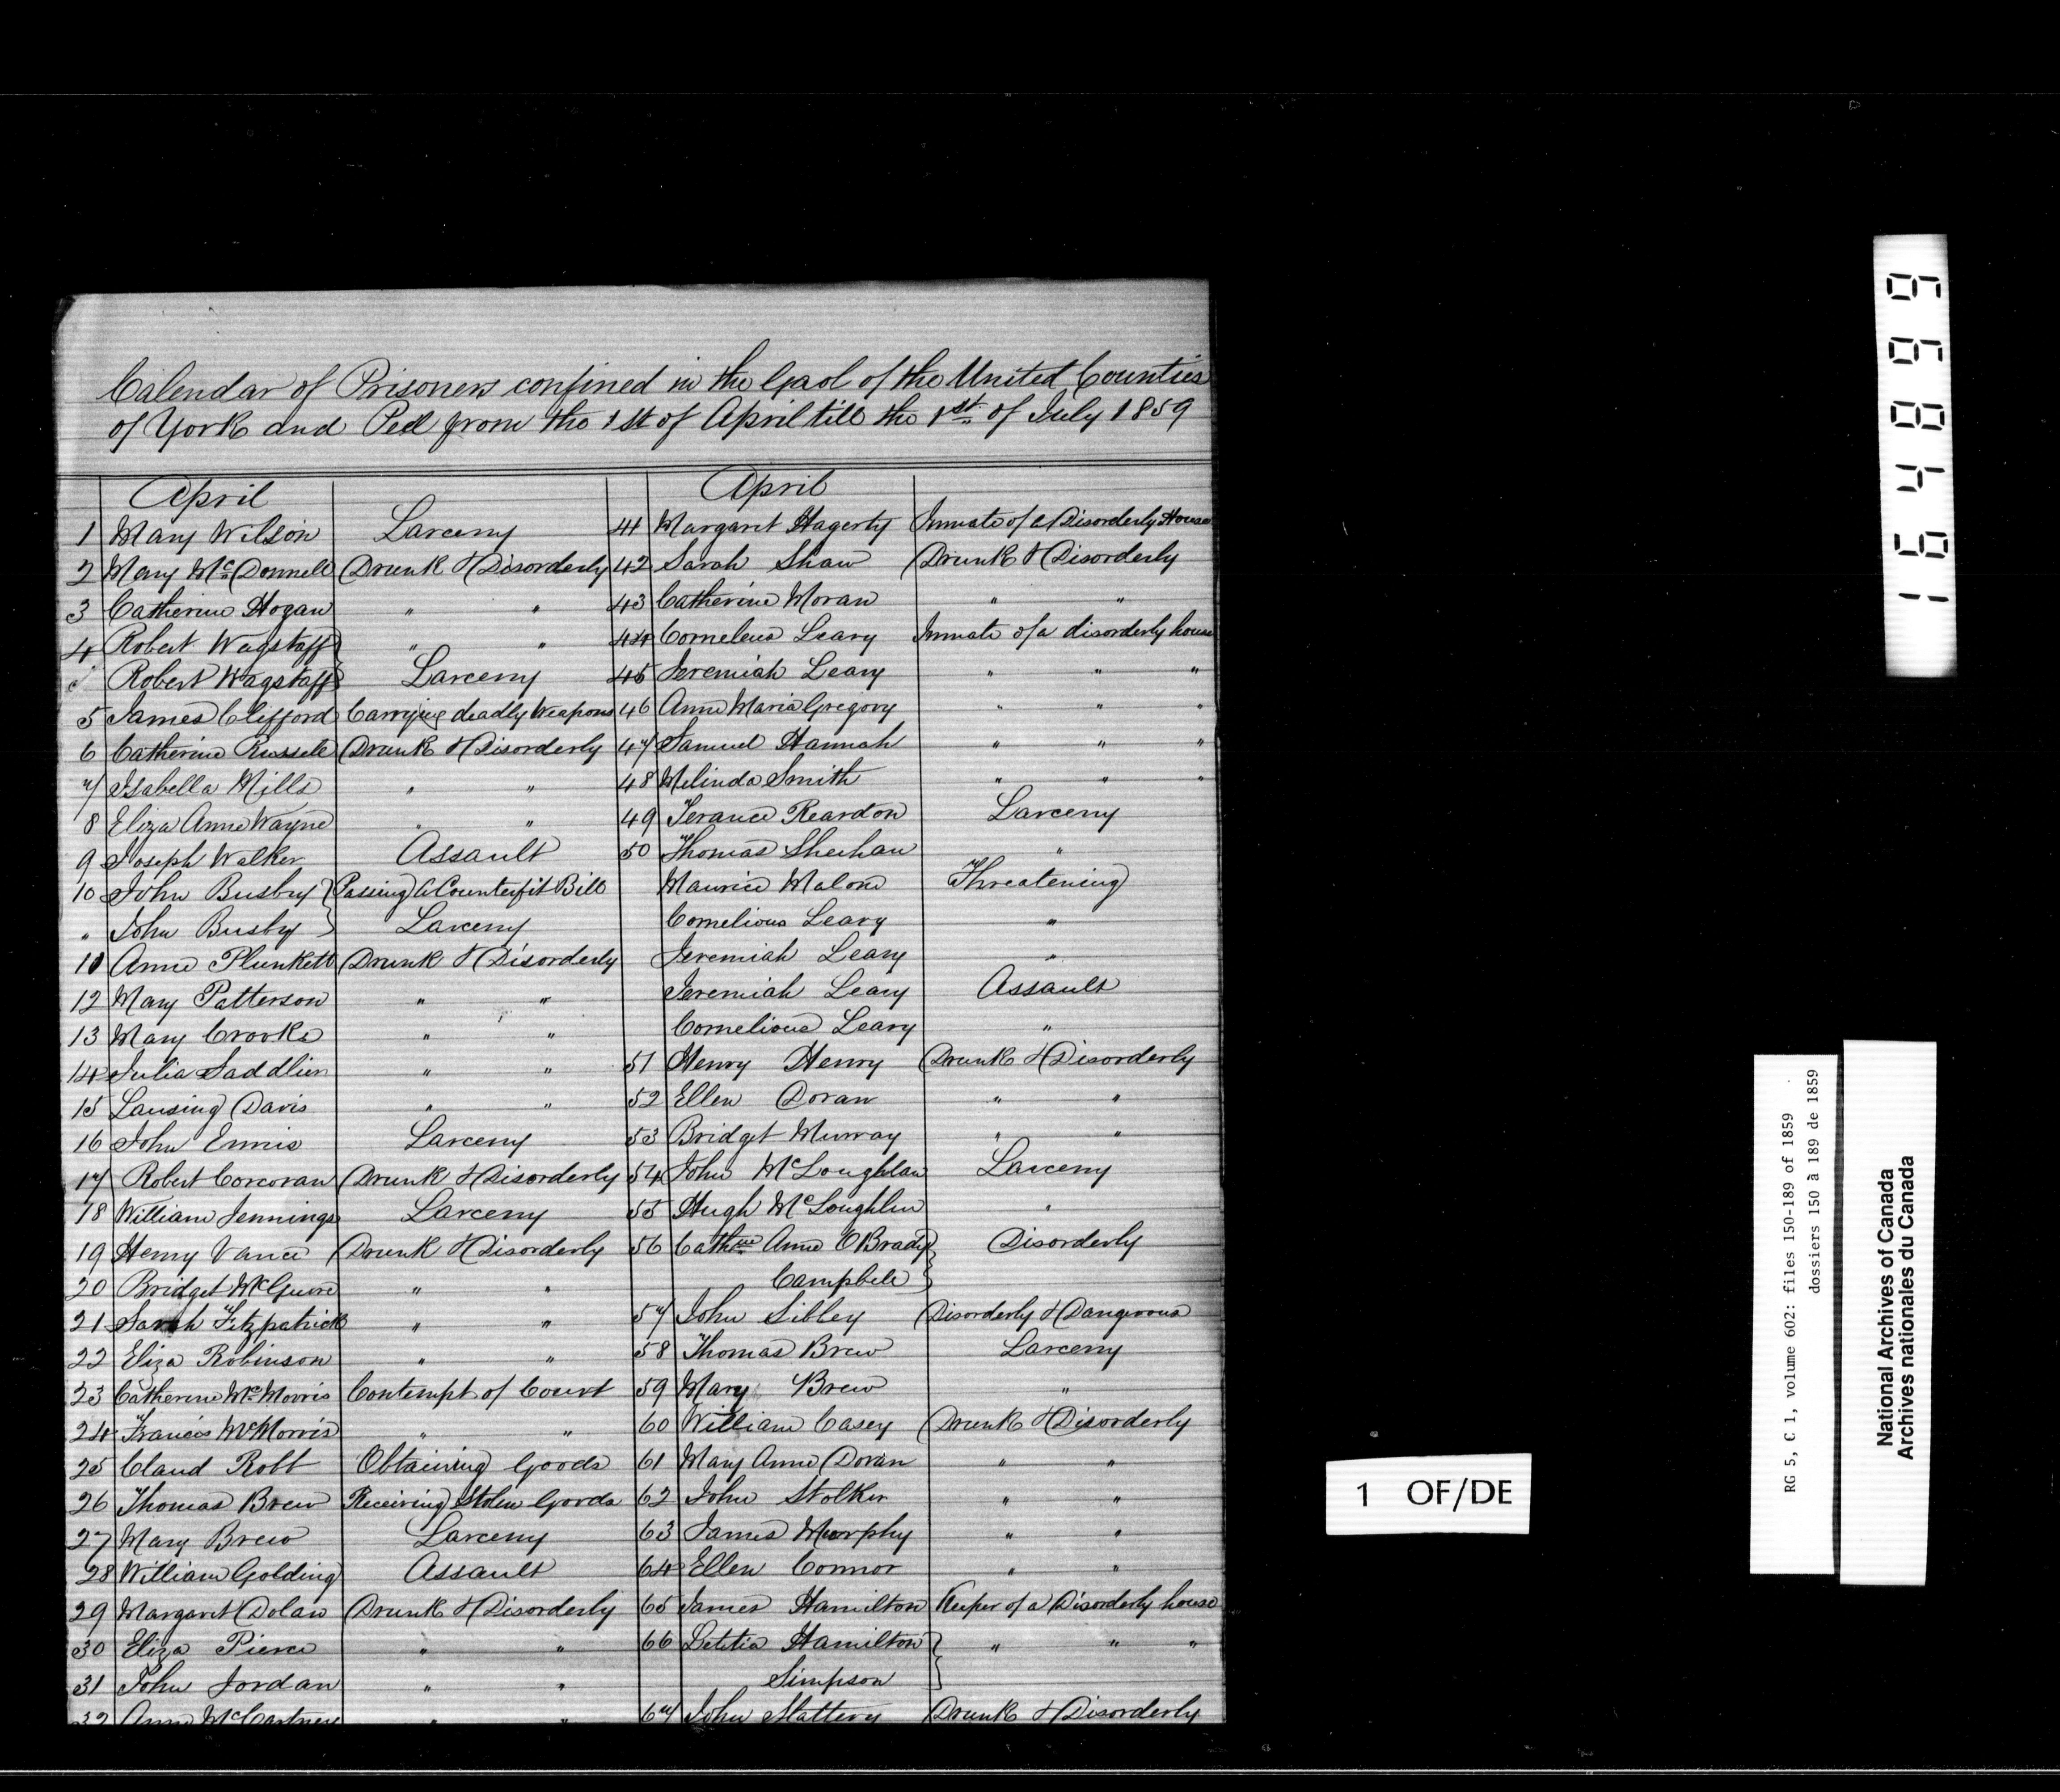 Calendar of Prisoners confined in the Gaol of the United Counties
of York and Peel from the 1st of April till the 1st of July 1859
April
1 Mary Wilson Larceny
2 Mary McDonnell Drunk & Disorderly
3 Catherine Hogan " "
4 Robert Wagstaff } " "
" Robert Wagstaff } Larceny
5 James Clifford Carrying deadly Weapons
6 Catherine Russell Drunk & Disorderly
7 Isabella Mills " "
8 Eliza Anne Wayne " "
9 Joseph Walker Assault
10 John Busby } Passing a Counterfit Bill
" John Busby } Larceny
11 Anne Plunkett Drunk & Disorderly
12 Mary Patterson " "
13 Mary Crooks " "
14 Julia Saddlier " "
15 Lansing Davis " "
16 John Ennis Larceny
17 Robert Corcoran Drunk & Disorderly
18 William Jennings Larceny
19 Henry Vance Drunk & Disorderly
20 Bridget McGuire " "
21 Sarah Fitzpatrick " "
22 Eliza Robinson " "
23 Catherine McMorris Contempt of Court
24 Francis McMorris " "
25 Claud Robb Obtaining Goods
26 Thomas Brew Receiving Stolen Goods
27 Mary Brew Larceny
28 William Golding Assault
29 Margaret Dolan Drunk & Disorderly
30 Eliza Pierce " "
31 John Jordan " "
32 Anne McCartney " "
April
41 Margaret Hagerty Inmate of a Disorderly House
42 Sarah Shaw Drunk & Disorderly
43 Catherine Moran " "
44 Cornelius Leary Inmate of a disorderly house
45 Jeremiah Leary " " "
46 Anne Maria Gregory " " "
47 Samuel Hannah " " "
48 Melinda Smith " " "
49 Terance Reardon Larceny
50 Thomas Sheehan "
Maurice Malone Threatening
Cornelious Leary "
Jeremiah Leary "
Jeremiah Leary Assault
Cornelious Leary "
51 Henry Henry Drunk & Disorderly
52 Ellen Doran " "
53 Bridget Murray " "
54 John McLoughlan Larceny
55 Hugh McLoughlin "
56 Cathne Anne OBrady } Disorderly
Campbell }
57 John Sibley Disorderly & Dangerous
58 Thomas Brew Larceny
59 Mary Brew "
60 William Casey Drunk & Disorderly
61 Mary Anne Doran " "
62 John Stolker " "
63 James Murphy " "
64 Ellen Connor " "
65 James Hamilton Keeper of a Disorderly house
66 Letitia Hamilton } " " "
Simpson }
67 John Slattery Drunk & Disorderly
1 OF/DE
164899
RG 5, C 1, volume 602: files 150-189 of 1859
dossiers 150 à 189 de 1859
National Archives of Canada
Archives nationales du Canada